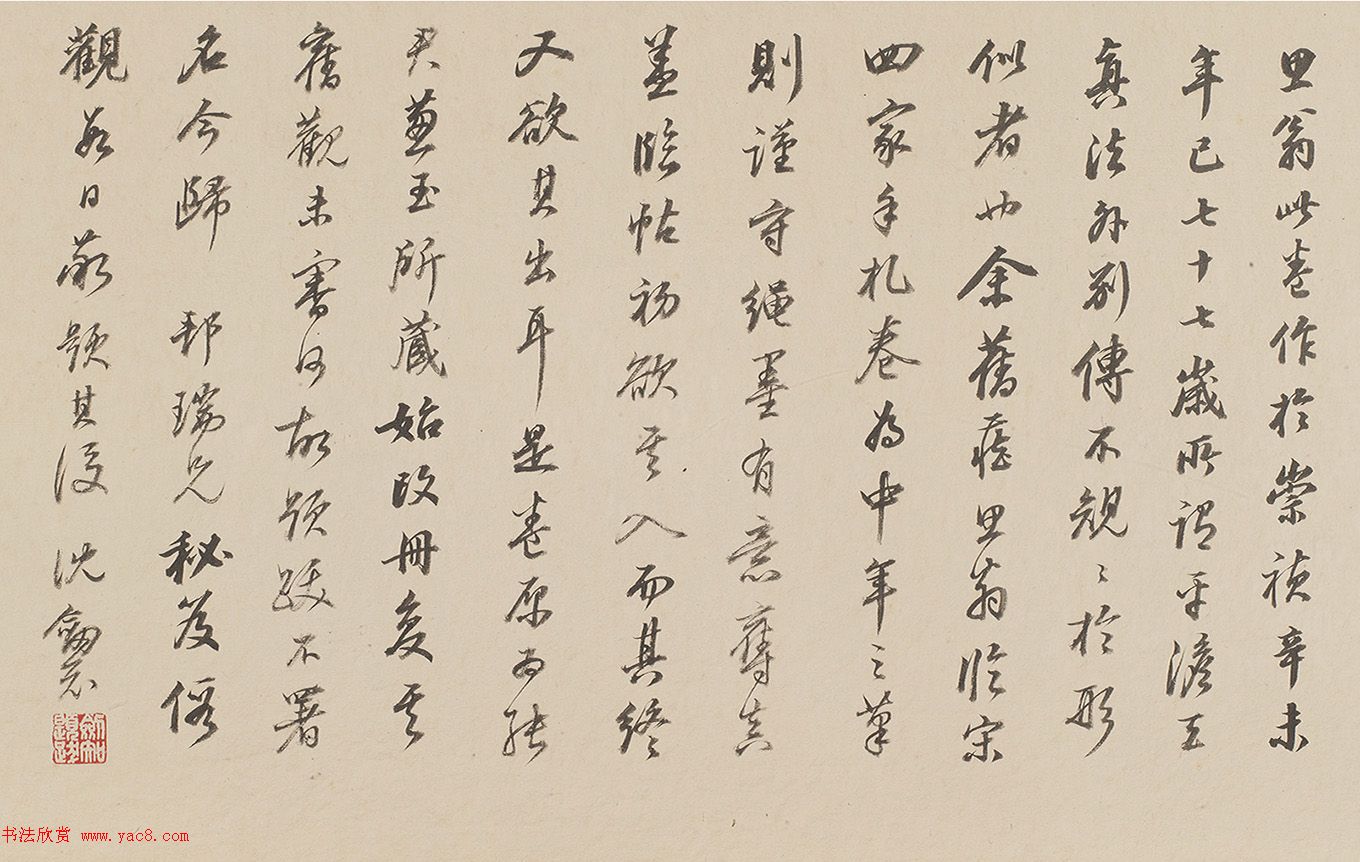 思翁此卷作於崇禎辛未
年已七十七歲所謂平澹天
真法外別傳不規〻於形
似者也余舊藏思翁臨宋
四家手札卷為中年之筆
則謹守繩墨有意奪真
蓋臨帖初欲其入而其終
又欲其出耳是卷原為張
君蔥玉所藏始改冊復其
舊觀未審何故題跋不署
名今歸 邦瑞兄秘笈假
觀數日敬題其後 沈劍知
劍知題跋
书法欣赏 www.yac8.com